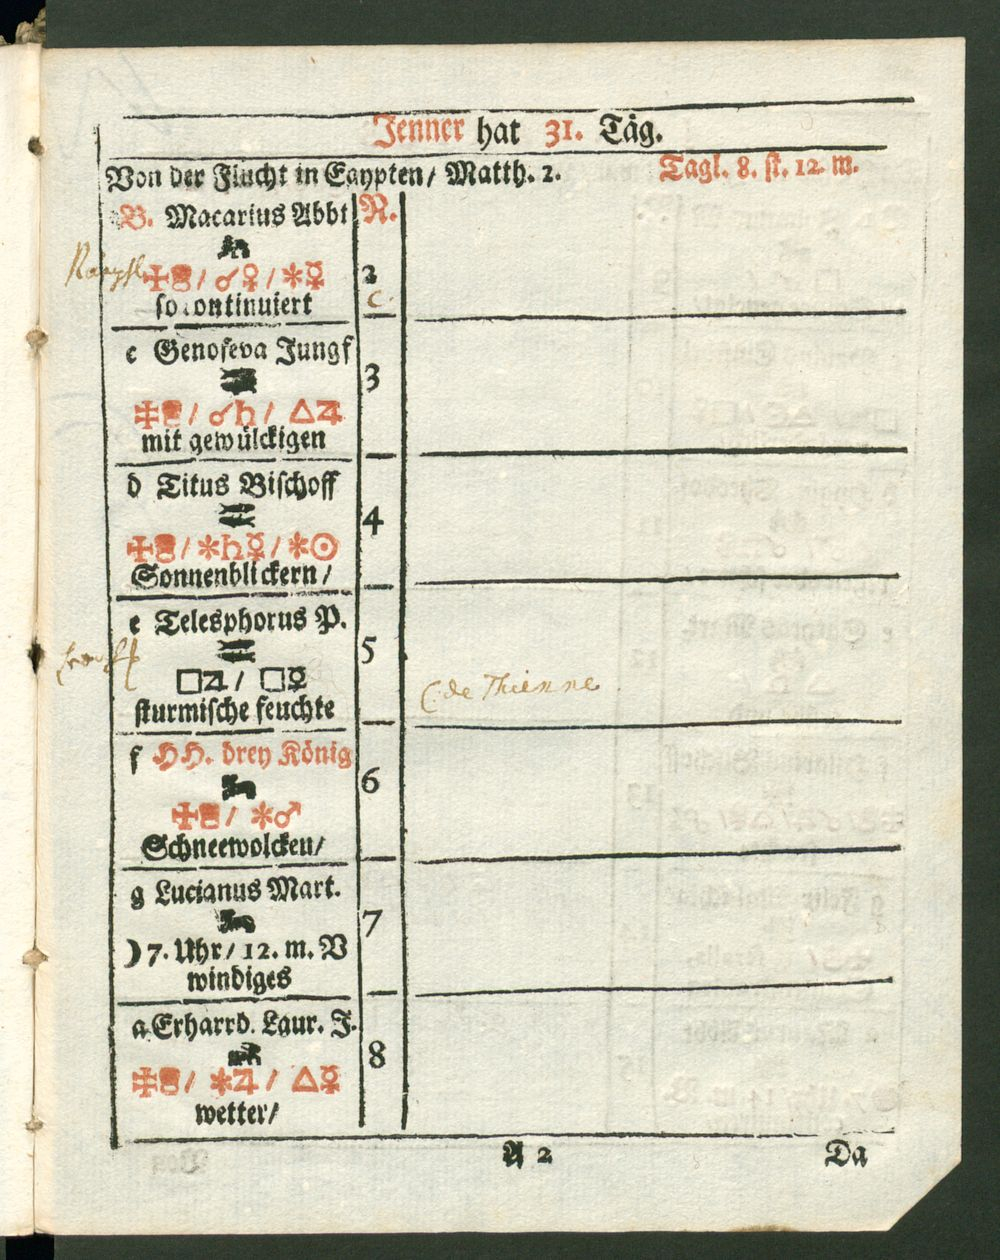 Jenner hat 31. Täg.
Von der Flucht in Egypten/ Matth. 2. Tagl. 8. st. 12. m.
B. Macarius Abbt R.
✠ / ☌♀ / ✱☿ 2
so continuiert C.
c Genofeva Jungf
3
✠ / ☌♄ / △♃
mit gewülckigen
d Titus Bischoff
4
✠ / ✱♄☿ / ✱☉
Sonnenblickern/
e Telesphorus P.
5
□♃ / □☿
C. de Thienne
sturmische feuchte
f HH. drey König
6
✠ / ✱♂
Schneewolcken/
g Lucianus Mart.
7
☽ 7. Uhr/ 12. m. V
windiges
a Erharrd. Laur. J.
8
✠ / ✱♃ / △☿
wetter/
A 2 Da